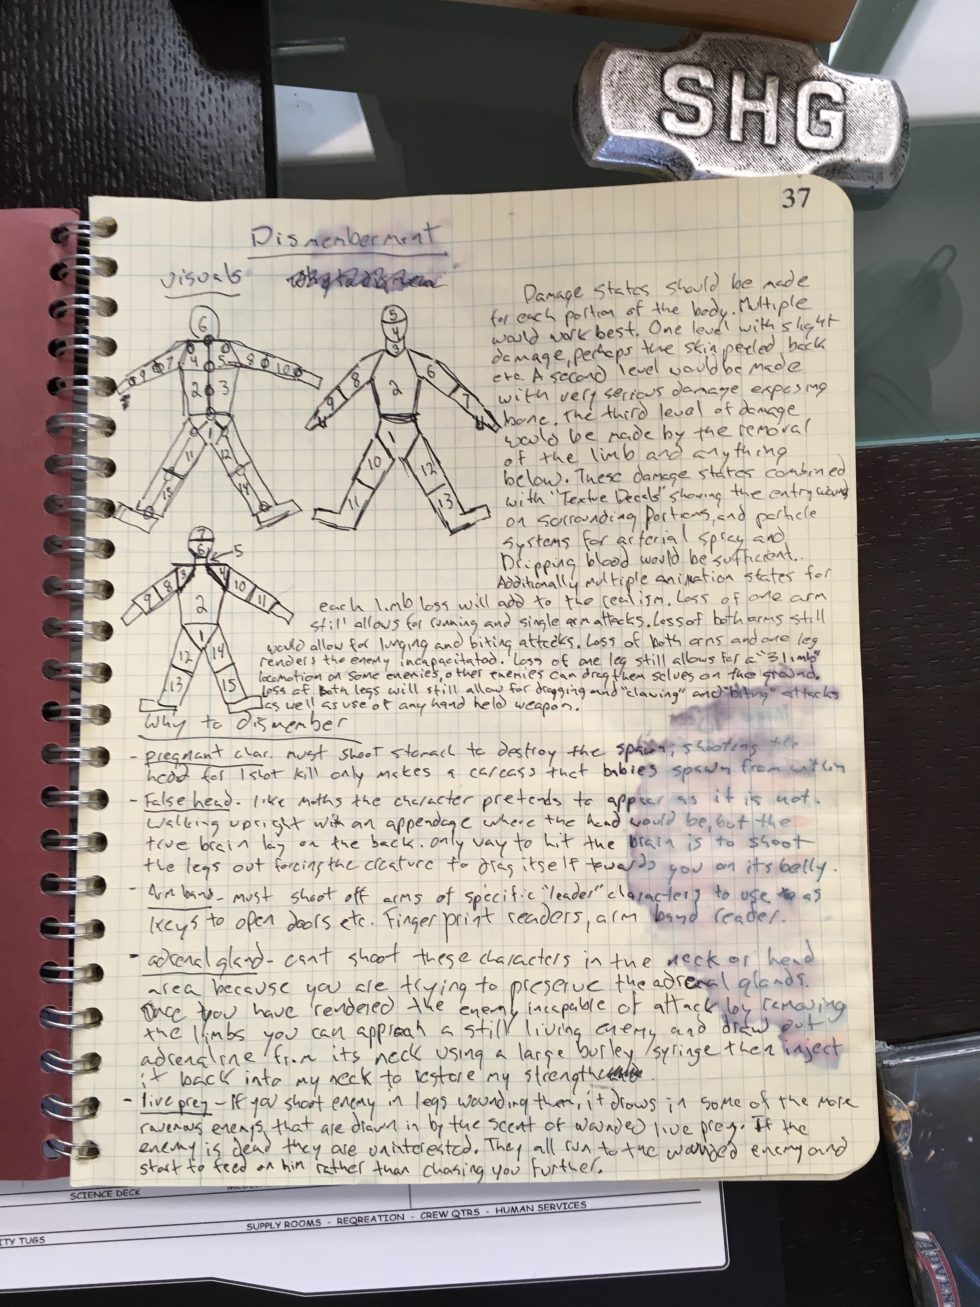 SHG
37
Dismemberment
Visuals
6
9 7 4 5 8 10
2 3
1
11 12
13 14
5
4
3
8 6
9 2 7
1
10 12
11 13
7
6 5
9 8 3 4 10 11
2
1
12 14
13 15
Damage states should be made
for each portion of the body. Multiple
would work best. One level with slight
damage, perhaps the skin peeled back
etc. A second level would be made
with very serious damage exposing
bone. The third level of damage
would be made by the removal
of the limb and anything
below. These damage states combined
with "Textue Decals" showing the entry wound
on surrounding portions, and particle
systems for arterial spray and
Dripping blood would be sufficient..
Additionally multiple animation states for
each limb loss will add to the realism. Loss of one arm
still allows for running and single arm attacks. Loss of both arms still
would allow for lunging and biting attacks. Loss of both arms and one leg
renders the enemy incapacitated. Loss of one leg still allows for a "3 limb"
locomotion on some enemies, other enemies can drag them selves on the ground.
Loss of both legs will still allow for dragging and "clawing" and "biting" attacks
as well as use of any hand held weapon.
Why to Dismember
- pregnant char. must shoot stomach to destroy the spawn; shooting the
head for 1 shot kill only makes a carcass that babies spawn from within
- False head - like moths the character pretends to appear as it is not.
walking upright with an appendage where the head would be, but the
true brain lay on the back. only way to hit the brain is to shoot
the legs out forcing the creature to drag itself towards you on its belly.
- Arm band - must shoot off arms of specific "leader" characters to use as
keys to open doors etc. Fingerprint readers, arm band reader.
- adrenal gland - cant shoot these characters in the neck or head
area because you are trying to preserve the adrenal glands.
Once you have rendered the enemy incapable of attack by removing
the limbs you can approach a still living enemy and draw out
adrenaline from its neck using a large burley syringe then inject
it back into my neck to restore my strength
- live prey - If you shoot enemy in legs wounding them, it draws in some of the more
ravenous enemys that are drawn in by the scent of wounded live prey. If the
enemy is dead they are uninterested. They all run to the wounded enemy and
start to feed on him rather than chasing you further.
SCIENCE DECK
SUPPLY ROOMS - REQREATION - CREW QTRS - HUMAN SERVICES
ITY TUGS